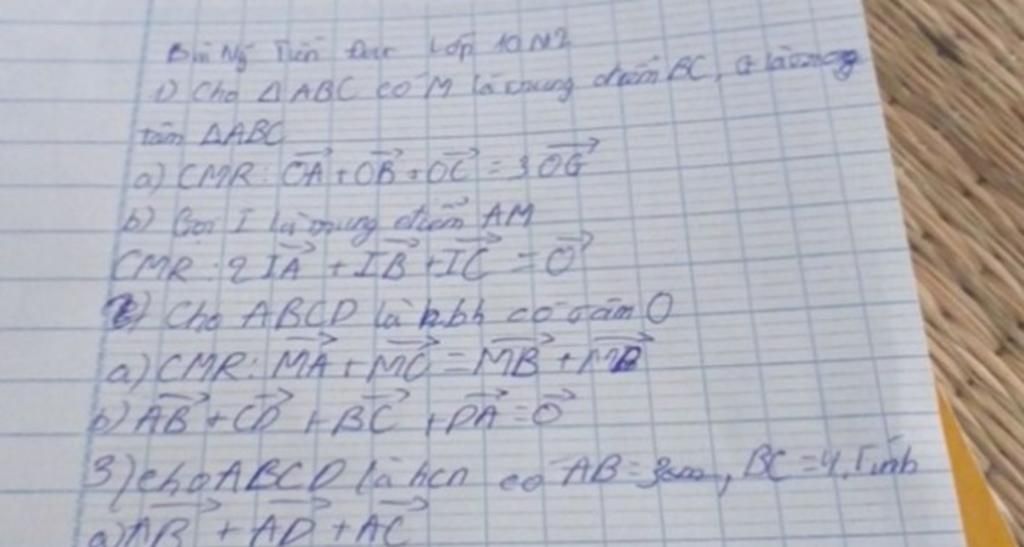 Bùi Ng Tiến Đức Lớp 10N2
1) Cho ΔABC có M là trung điểm BC, G là trọng
tâm ΔABC
a) CMR: OA + OB + OC = 3 OG
b) Gọi I là trung điểm AM
CMR: 2 IA + IB + IC = O
2) Cho ABCD là h.bh có tâm O
a) CMR: MA + MC = MB + MD
b) AB + CD + BC + DA = O
3) cho ABCD là hcn có AB = 3cm, BC = 4. Tính
a) AB + AD + AC